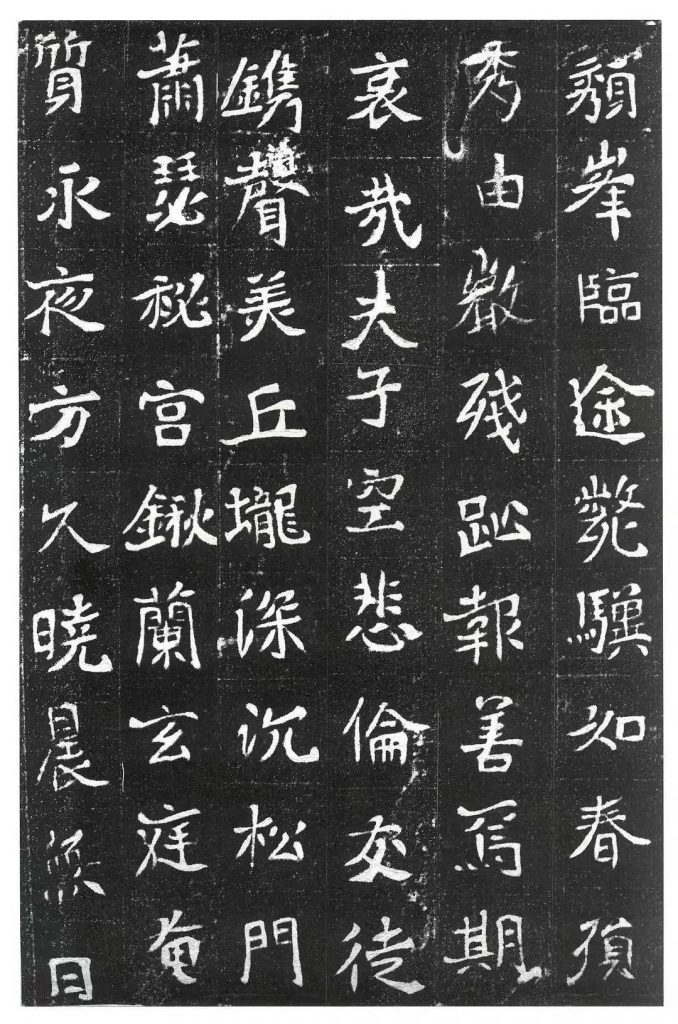 頽峯臨途斃驥如春殞
秀由殘趾報善焉期
哀哉夫子空悲倫友徒
鐫聲美丘壠深沉松門
蕭瑟秘宮鍬蘭玄庭奄
質永夜方久曉晨無日